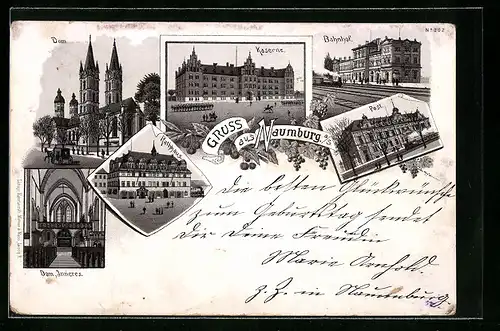 Dom.
Kaserne.
Bahnhof.
No 202
Post.
Rathhaus
GRUSS
aus Naumburg a/S
Dom, Inneres.
Die besten Glückwünsche
zum Geburtstag sendet
Dir Deine Freundin
Marie Arnhold.
z. Z. in Naumburg.